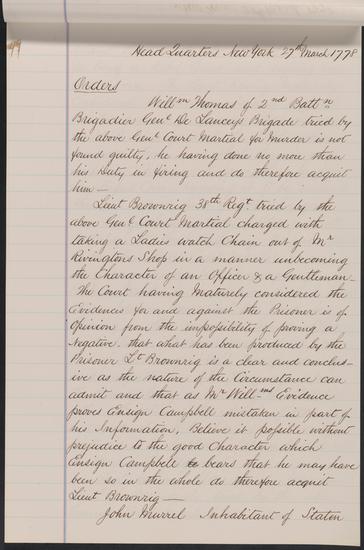 Head Quarters New York 27th March 1778
Orders
Willm Thomas of 2nd Battn
Brigadier Genl De Lancey's Brigade tried by
the above Genl Court Martial for Murder is not
found guilty, he having done no more than
his Duty in firing and do therefore acquit
him —
Lieut Brownrig 38th Regt tried by the
above Genl Court Martial charged with
taking a Ladies watch Chain out of Mr
Rivingtons Shop in a manner unbecoming
the Character of an Officer & a Gentleman.
The Court having Maturely considered the
Evidences for and against the Prisoner is of
Opinion from the impossibility of proving a
Negative. that what has been produced by the
Prisoner Lt Brownrig is a clear and conclus-
ive as the nature of the Circumstance can
admit and that as Mr Willms Evidence
proves Ensign Campbell mistaken in part of
his Information, Believe it possible without
prejudice to the good Character which
Ensign Campbell bears that he may have
been so in the whole do therefore acquit
Lieut Brownrig —
John Murrel Inhabitant of Staten